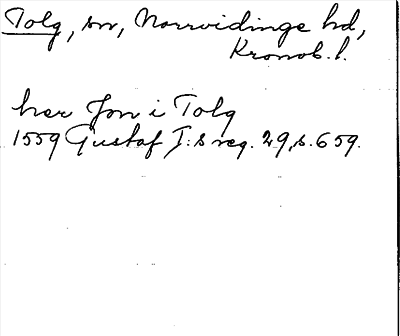 Tolg, sn, Norrvidinge hd,
Kronob. l.
her Jon i Tolg
1559 Gustaf I:s reg. 29, s. 659.